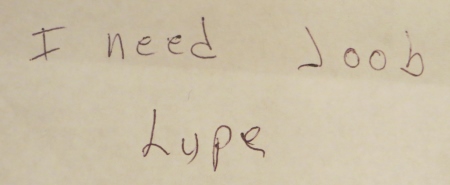 I need Joob
Lupe